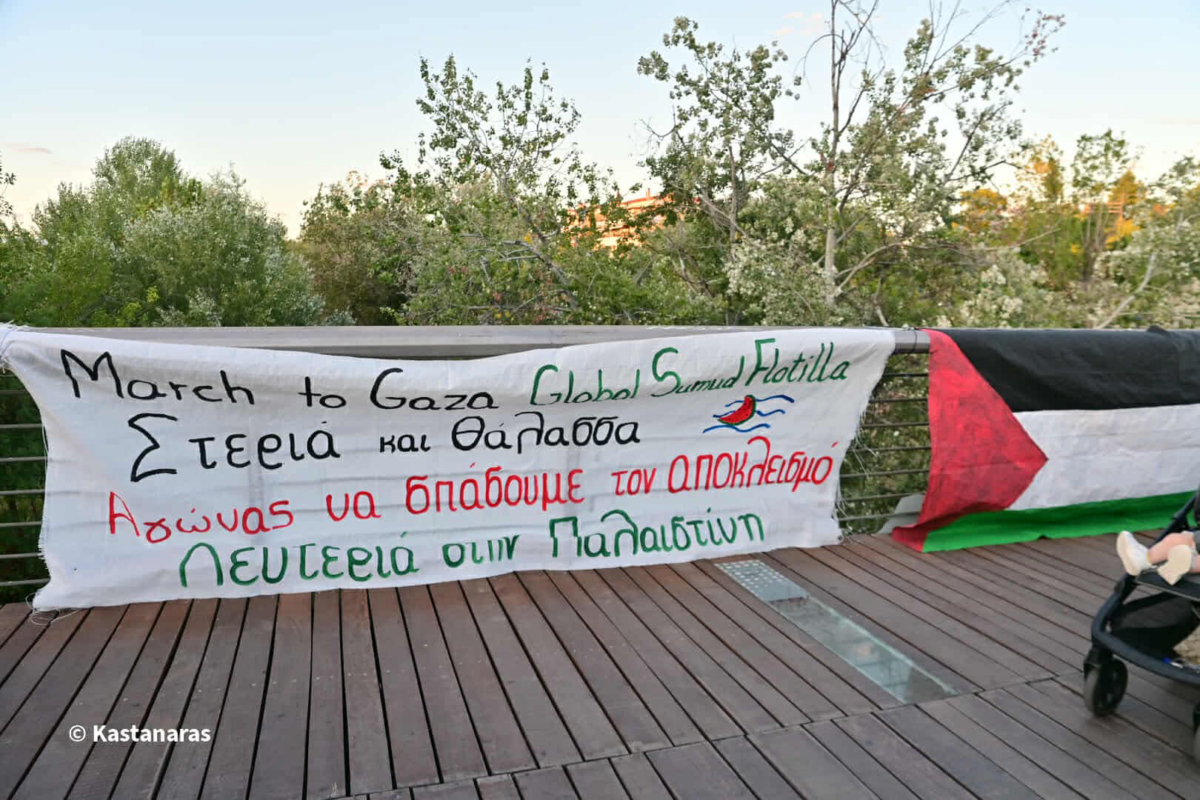 March to Gaza Global Sumud Flotilla
Στεριά και θάλασσα
Αγώνας να σπάσουμε τον αποκλεισμό
Λευτεριά στην Παλαιστίνη
© Kastanaras